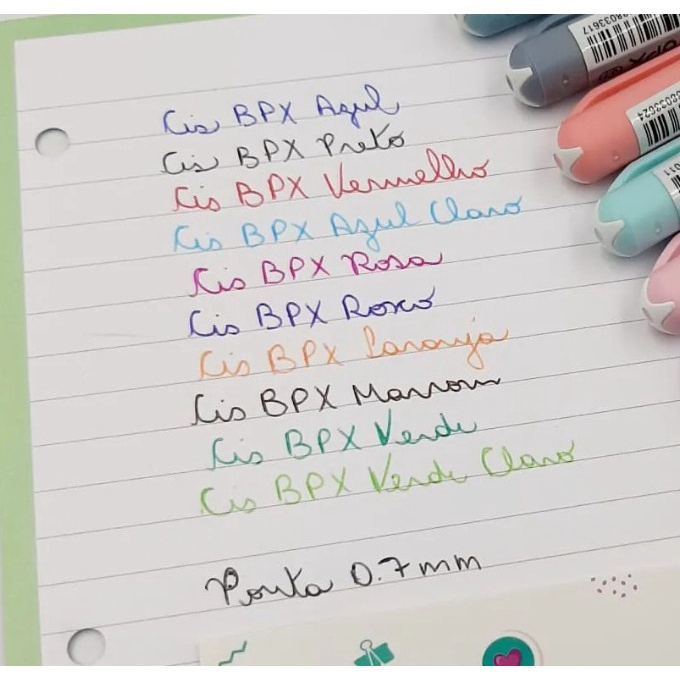 Cis BPX Azul
Cis BPX Preto
Cis BPX Vermelho
Cis BPX Azul Claro
Cis BPX Rosa
Cis BPX Roxo
Cis BPX Laranja
Cis BPX Marrom
Cis BPX Verde
Cis BPX Verde Claro
Ponta 0.7mm